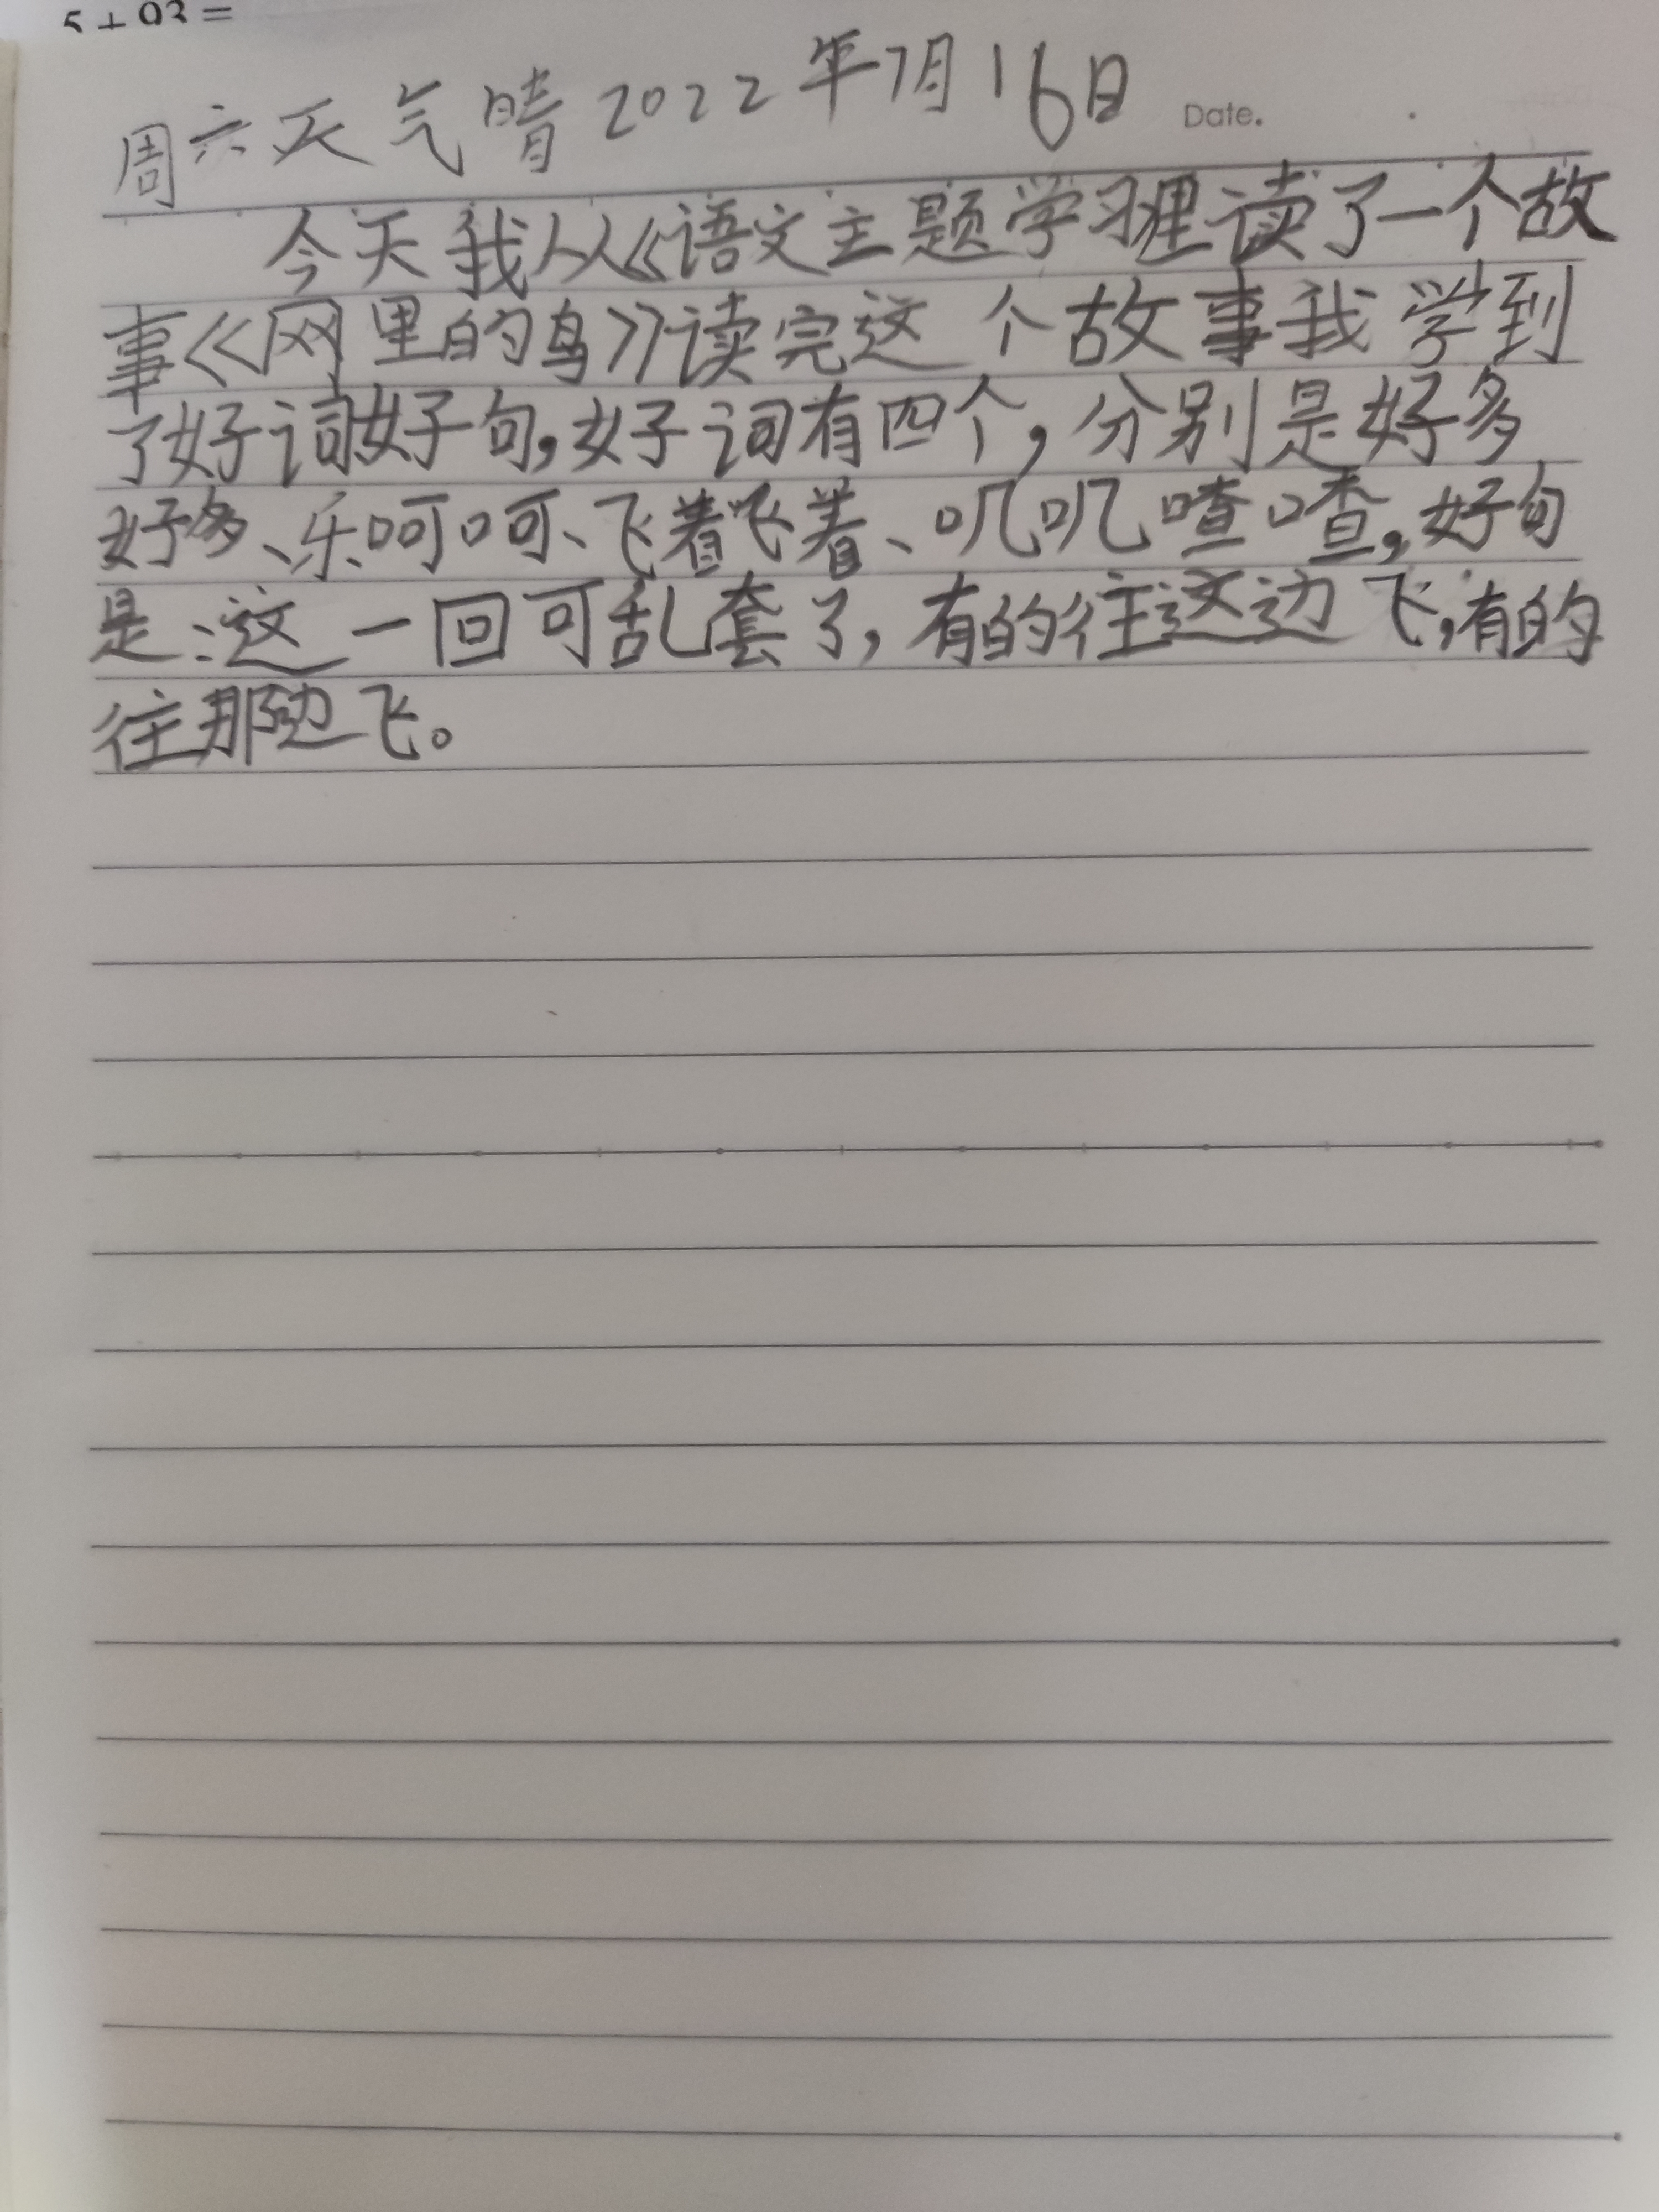 5+93=
周六天气晴2022年7月16日 Date.
今天我从《语文主题学习里读了一个故
事《网里的鸟》读完这个故事我学到
了好词好句,好词有四个,分别是好多
好多、乐呵呵、飞着飞着、叽叽喳喳,好句
是:这一回可乱套了,有的往这边飞,有的
往那边飞。